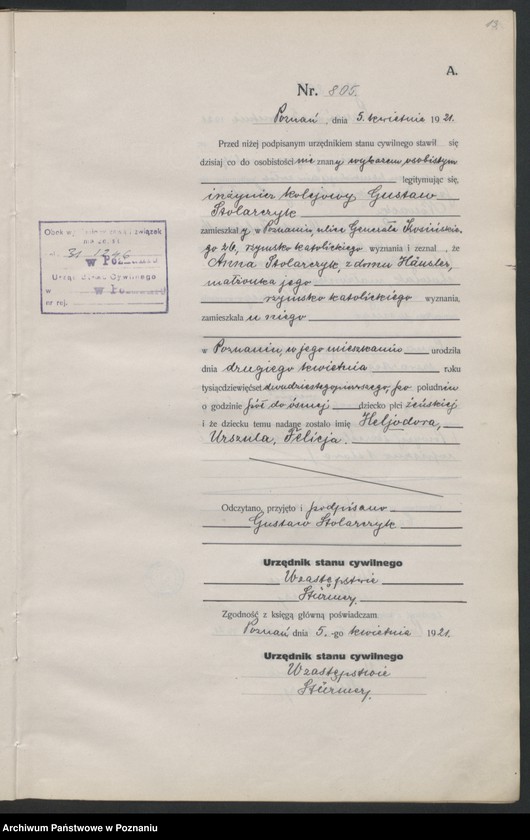 13
A.
Nr. 805.
Poznań, dnia 5. kwietnia 1921.
Przed niżej podpisanym urzędnikiem stanu cywilnego stawił się
dzisiaj co do osobistości nie znany wykazem osobistym
legitymując się,
inżynier kolejowy Gustaw
Stolarczyk
zamieszkały w Poznaniu, ulica Generała Kosińskie-
go 26, rzymsko katolickiego wyznania i zeznał, że
Anna Stolarczyk, z domu Häusler,
małżonka jego
rzymsko katolickiego wyznania,
zamieszkała u niego
w Poznaniu, w jego mieszkaniu urodziła
dnia drugiego kwietnia roku
tysiącdziewięćset dwudziestegopierwszego, po południu
o godzinie pół do ósmej dziecko płci żeńskiej
i że dziecku temu nadane zostało imię Heljodora,
Urszula, Felicja.
Odczytano, przyjęto i podpisano
Gustaw Stolarczyk
Urzędnik stanu cywilnego
W zastępstwie
Stürmer.
Zgodność z księgą główną poświadczam
Poznań dnia 5.-go kwietnia 1921.
Urzędnik stanu cywilnego
W zastępstwie
Stürmer.
związek
w Poznaniu
Urząd Stanu Cywilnego
w Poznaniu
nr rej.
Archiwum Państwowe w Poznaniu